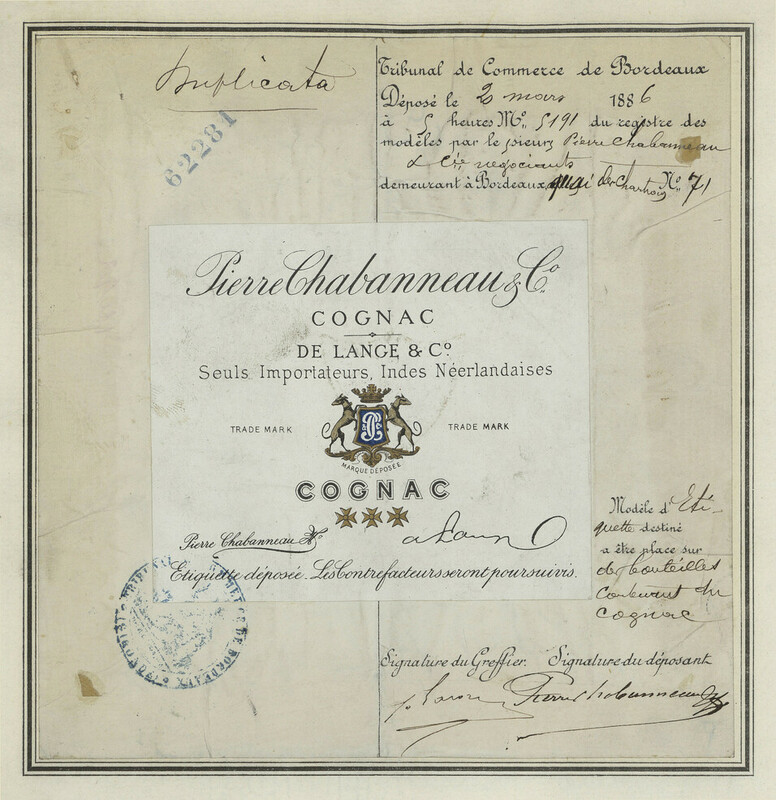 Duplicata
62281
Tribunal de Commerce de Bordeaux
Déposé le 2 mars 1886
à 5 heures No. 5191 du registre des
modèles par le sieurs Pierre Chabanneau
& Cie négociants
demeurant à Bordeaux, quai des Chartrons No. 71
Pierre Chabanneau & Co.
COGNAC
DE LANGE & Co.
Seuls Importateurs, Indes Néerlandaises
TRADE MARK
TRADE MARK
MARQUE DÉPOSÉE
COGNAC
Pierre Chabanneau & Co
Etiquette déposée. Les Contrefacteurs seront poursuivis.
Modèle d'Eti-
quette destiné
a être place sur
des bouteilles
contenant du
cognac
TRIBUNAL DE COMMERCE DE BORDEAUX
Signature du Greffier. Signature du déposant
Pierre Chabanneau